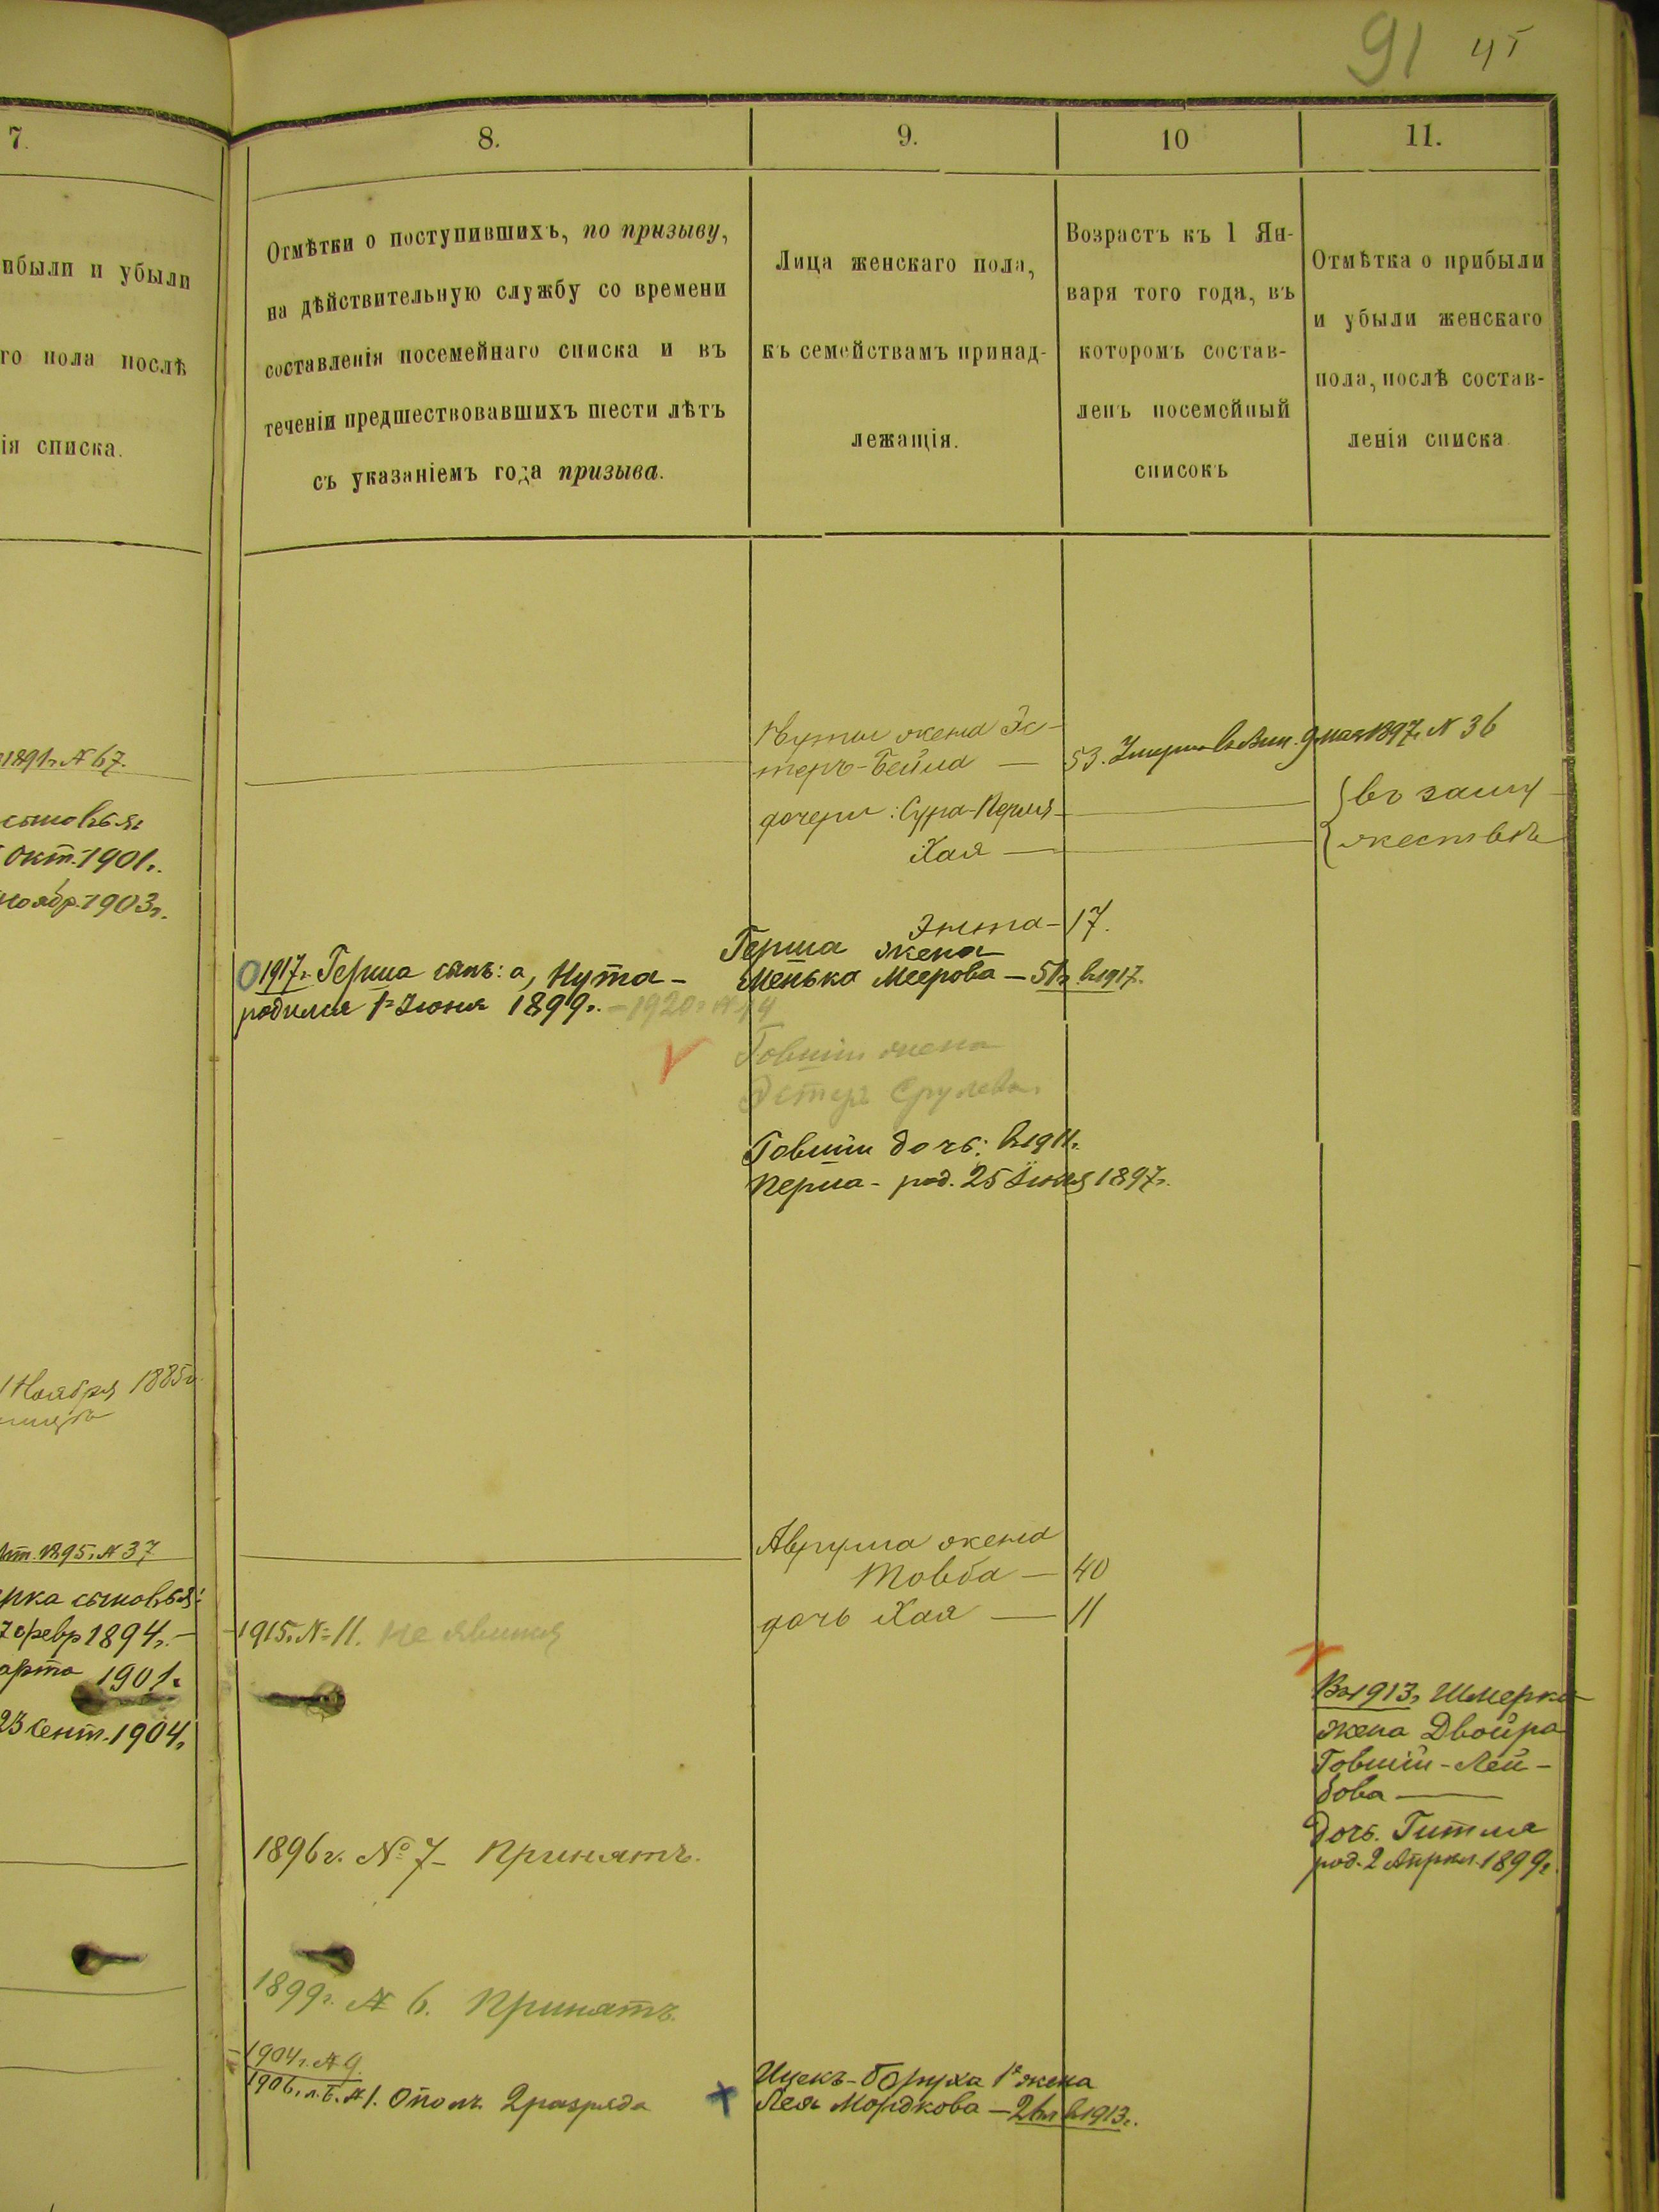 91
7.
ибыли и убыли
го пола послѣ
ія списка.
1891г. № 67.
сыновья
Окт. 1901г.
ноябр. 1903г.
1 Ноября 1885г.
1895г. № 37
рка сыновья:
7 февр 1894г. —
арта 1901г.
23 Сент. 1904г.
8.
Отмѣтки о поступившихъ, по призыву,
на дѣйствительную службу со времени
составленія посемейнаго списка и въ
теченіи предшествовавшихъ шести лѣтъ
съ указаніемъ года призыва.
1917г. Герша сынъ: а, Нута —
родился 1го Іюня 1899г. — 1920г.
1915г. № 11. Не явился
1896г. № 7 — Принятъ.
1899г. № 6. Принятъ.
1904г. № 9.
1906г. л. б. № 1. Ополч. 2 разряда
9.
Лица женскаго пола,
къ семействамъ принад-
лежащія.
Нуты жена Эс-
теръ-Бейла —
дочери: Сура-Перля —
Хая —
Энта —
Герша жена
Менька Меерова — 51г. в 1917г.
Говшіи жена
Эстеръ Срулева.
Говшіи дочь: в 1911г.
Перла — род. 25 Іюня 1897г.
Аврума жена
Товба —
дочь Хая —
Ицекъ-Боруха 1я жена
Лея Мордкова — 26л в 1913г.
10
Возрастъ къ 1 Ян-
варя того года, въ
которомъ состав-
ленъ посемейный
списокъ
53. Умерла 9 мая 1897г. № 36
17.
40
11
11.
Отмѣтка о прибыли
и убыли женскаго
пола, послѣ состав-
ленія списка
въ заму-
жествѣ
Въ 1913г. Шмерка
жена Двойра
Говшіи-Лей-
бова —
дочь. Гитля
род. 2 Апрѣл. 1899г.